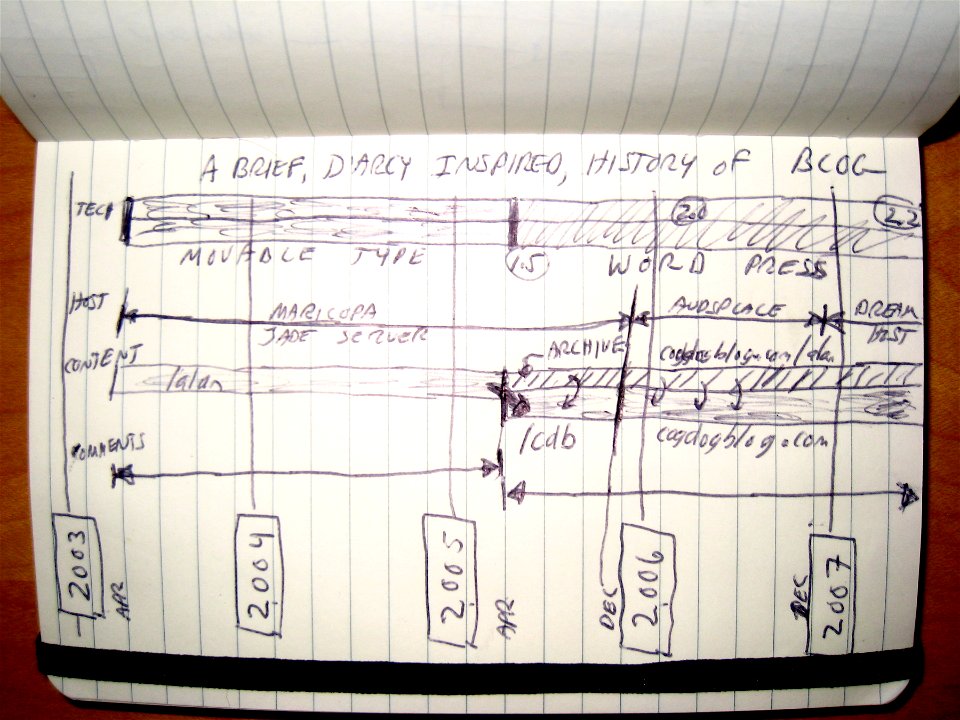 A BRIEF, D'ARCY INSPIRED, HISTORY OF BLOG
TECH
2.0
2.2
MOVABLE TYPE
1.5
WORD PRESS
HOST
MARICOPA
JADE SERVER
AUDSPLACE
DREAM
HOST
CONTENT
ARCHIVE
cogdogblog.com/alan
/alan
/cdb
cogdogblog.com
COMMENTS
2003
APR
2004
2005
APR
DEC
2006
DEC
2007